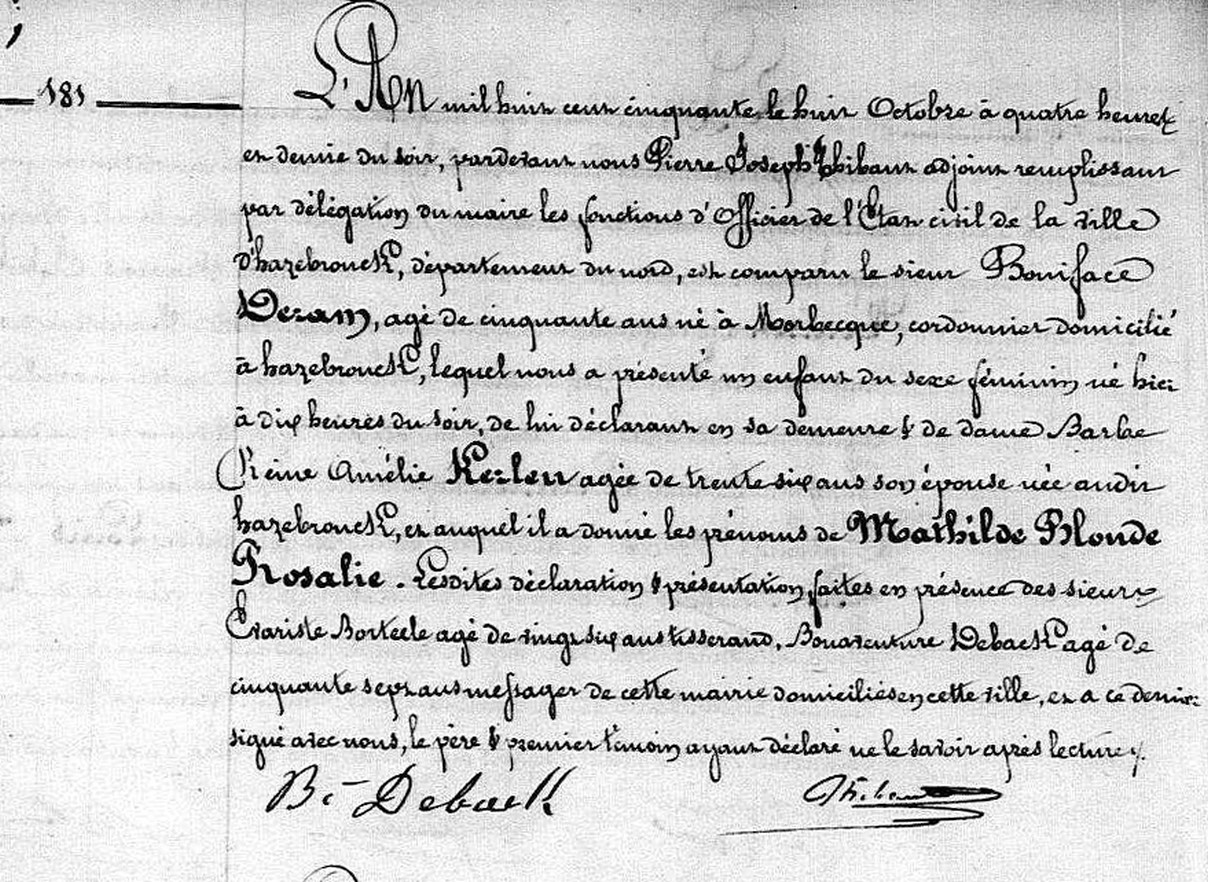 181
L'An mil huit cent cinquante, le huit Octobre à quatre heures
et demie du soir, pardevant nous Pierre Joseph Thibaut adjoint remplissant
par délégation du maire les fonctions d'Officier de l'Etat civil de la ville
d'hazebrouck, département du nord, est comparu le sieur Boniface
Deram, agé de cinquante ans né à Morbecque, cordonnier domicilié
à hazebrouck, lequel nous a présenté un enfant du sexe féminin né hier
à dix heures du soir, de lui déclarant en sa demeure & de dame Barbe
Reine Amélie agée de trente six ans son épouse née audit
hazebrouck, et auquel il a donné les prénoms de Mathilde Blonde
Rosalie. Lesdites déclaration & présentation faites en présence des sieurs
Evariste agé de vingt six ans tisserand, Bonaventure Deback agé de
cinquante sept ans messager de cette mairie domiciliés en cette ville, et a ce dernier
signé avec nous, le père & premier témoin ayant déclaré ne le savoir après lecture.
Bre Deback Thibaut